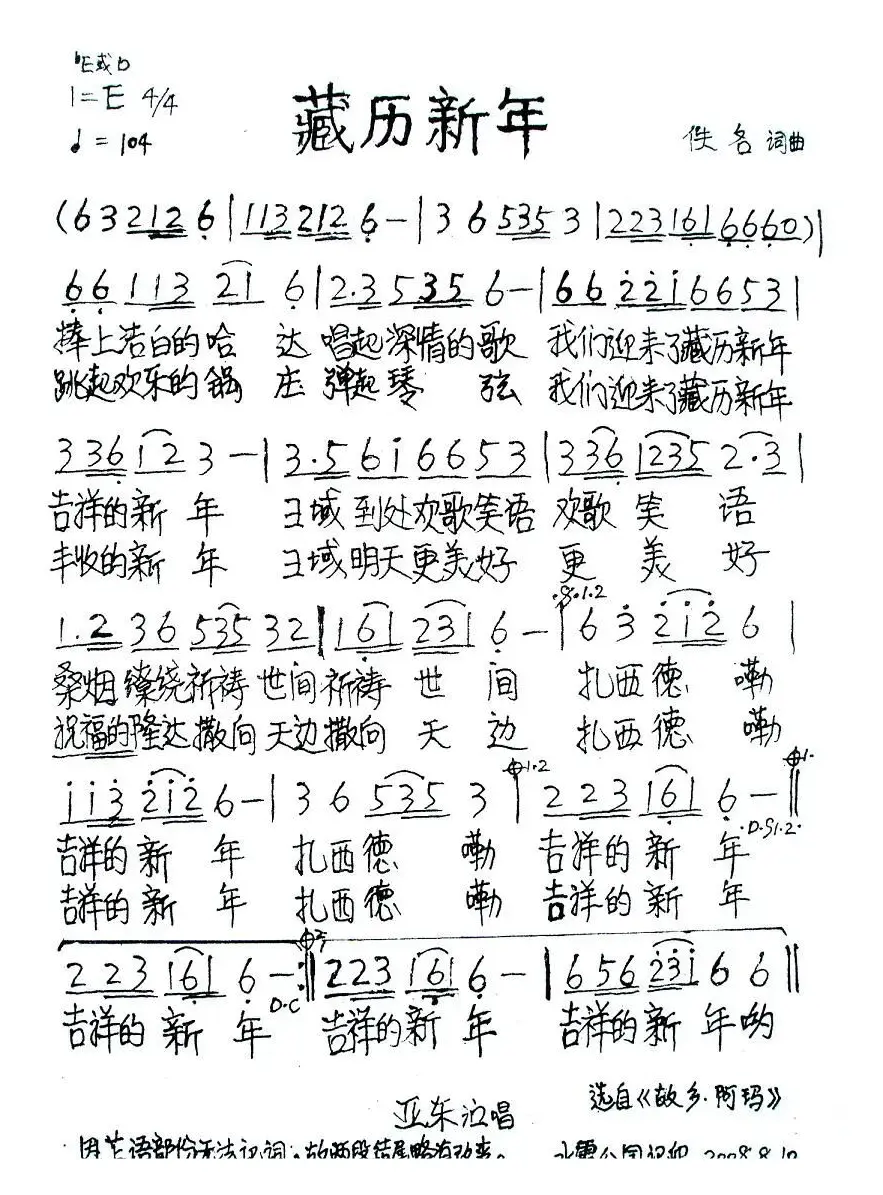 ♭E或D
1=E 4/4
♩=104
藏历新年
佚名 词曲
(6 3 2 1 2 6 | 1 1 3 2 1 2 6 — | 3 6 5 3 5 3 | 2 2 3 1 6 1 6 6 6 0)|
6 6 1 1 3 2 1 6 | 2·3 5 3 5 6 — | 6 6 2 2 1 6 6 5 3 |
捧上洁白的哈 达 唱起深情的歌 我们迎来了藏历新年
跳起欢乐的锅 庄 弹起琴 弦 我们迎来了藏历新年
3 3 6 1 2 3 — | 3·5 6 i 6 6 5 3 | 3 3 6 1 2 3 5 2·3 |
吉祥的新 年 域到处欢歌笑语 欢歌 笑 语
丰收的新 年 域明天更美好 更 美 好
1·2 3 6 5 3 5 3 2 | 1 6 1 2 3 1 6 — | 6 3 2 1 2 6 |
桑烟缭绕祈祷世间祈祷 世 间 扎西德 嘞
祝福的隆达撒向天边撒向 天 边 扎西德 嘞
i i 3 2 i 2 6 — | 3 6 5 3 5 3 | 2 2 3 1 6 1 6 — ‖
D.S1.2
吉祥的新 年 扎西德 嘞 吉祥的新 年
吉祥的新 年 扎西德 嘞 吉祥的新 年
2 2 3 1 6 1 6 — :‖ 2 2 3 1 6 1 6 — | 6 5 6 2 3 i 6 6 ‖
D.C
吉祥的新 年 吉祥的新 年 吉祥的新 年哟
选自《故乡·阿玛》
亚东 唱
2008.8.10